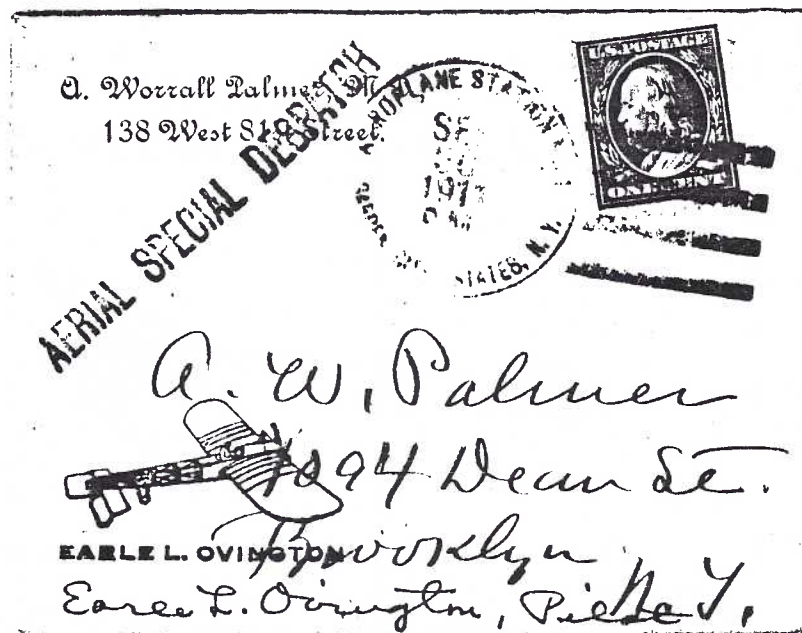 A. Worrall Palmer, M
138 West 81 Street.
AERIAL SPECIAL DESPATCH
AEROPLANE STATION
SE
191
STATES, N. Y.
U.S. POSTAGE
ONE CENT
A. W. Palmer
1094 Dean St.
Brooklyn
N. Y.
EARLE L. OVINGTON
Earle L. Ovington, Pilot